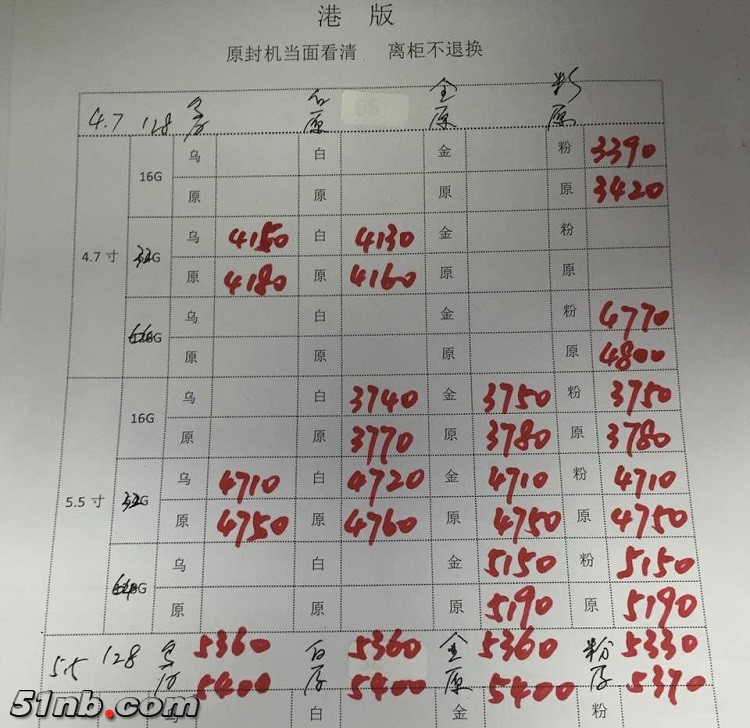 港 版
原封机当面看清 离柜不退换
4.7 128 乌原 白原 金原 粉原
16G 乌 白 金 粉 3390
原 原 原 原 3420
4.7 寸 32G 乌 4150 白 4130 金 粉
原 4180 原 4160 原 原
乌 白 金 粉 4770
原 原 原 原 4800
16G 乌 白 3740 金 3750 粉 3750
原 原 3770 原 3780 原 3780
5.5 寸 32G 乌 4710 白 4720 金 4710 粉 4710
原 4750 原 4760 原 4750 原 4750
乌 白 金 5150 粉 5150
原 原 原 5190 原 5190
5.5 128 乌原 5360 白原 5360 金原 5360 粉原 5330
5400 5400 5400 5370
乌 白 金 粉
51nb.com